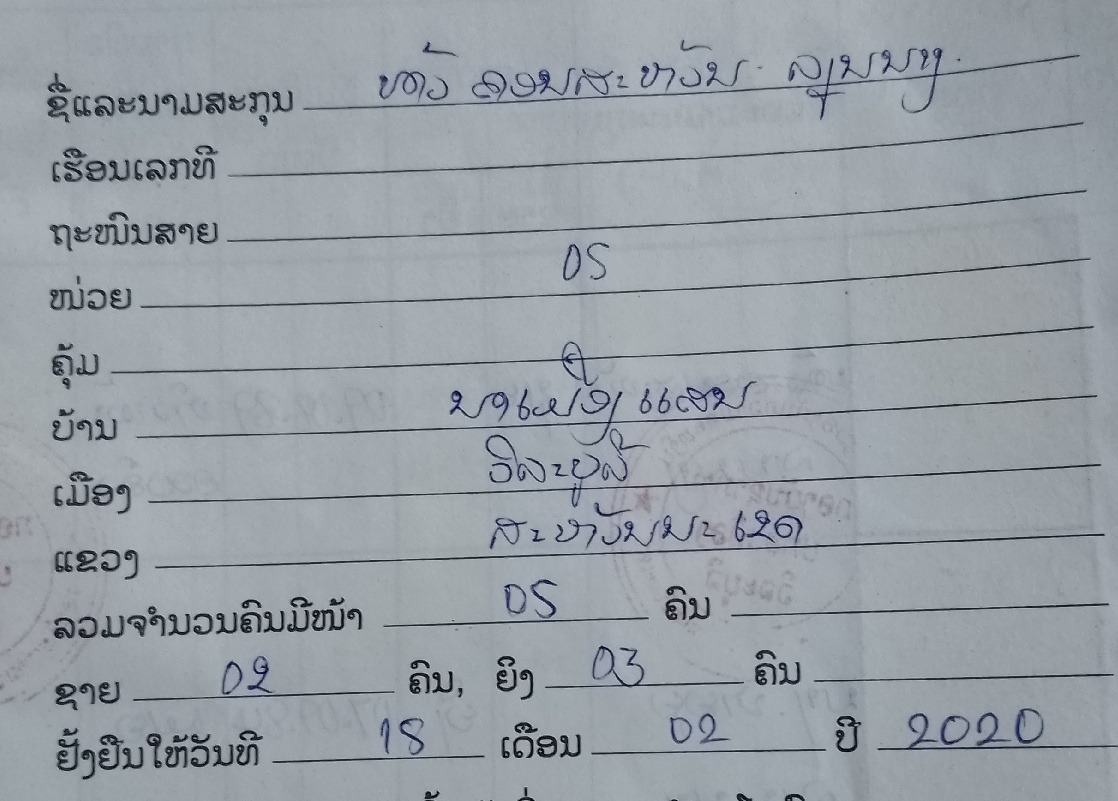 ຊື່ແລະນາມສະກຸນ
ເຮືອນເລກທີ
ຖະໜົນສາຍ
ໜ່ວຍ 05
ຄຸ້ມ
ບ້ານ ນາເຫຼື່ອງ ແສນ
ເມືອງ ວິລະບູລີ
ແຂວງ ສະຫວັນນະເຂດ
ລວມຈຳນວນຄົນມີໜ້າ 05 ຄົນ
ຊາຍ 02 ຄົນ, ຍິງ 03 ຄົນ
ຢັ້ງຢືນໃຫ້ວັນທີ 18 ເດືອນ 02 ປີ 2020